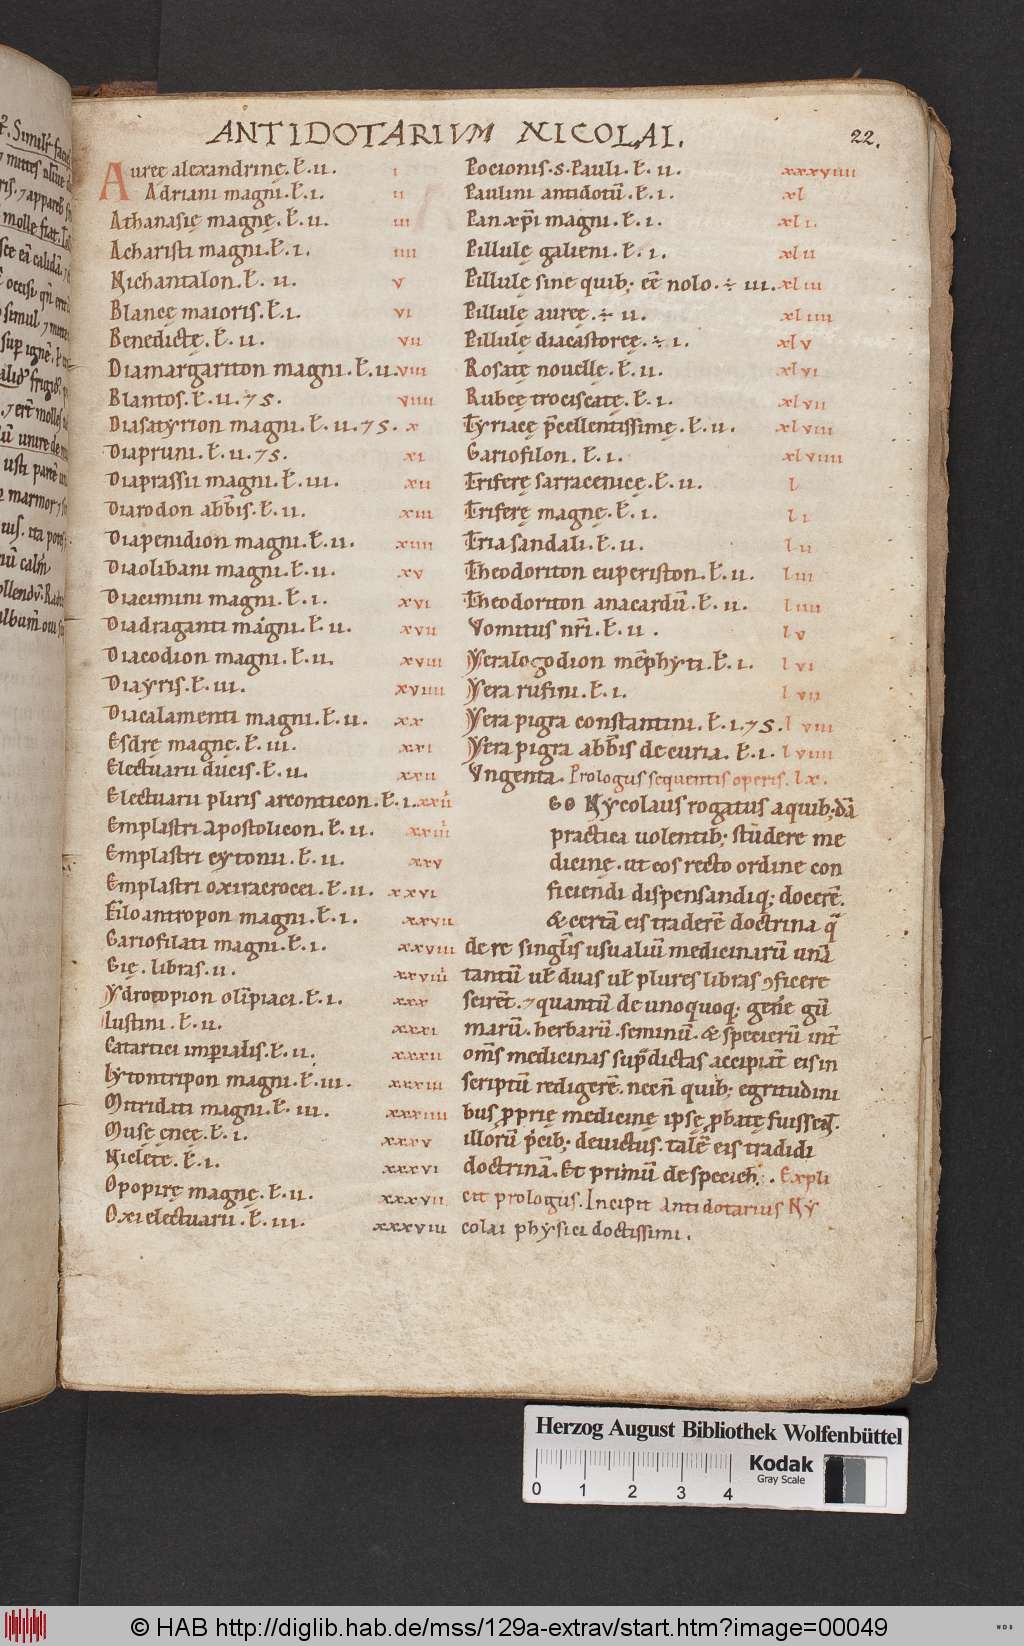 ANTIDOTARIVM NICOLAI.
22.
Auree alexandrinę. ł. ii. i
Adriani magni. ł. i. ii
Athanasię magnę. ł. ii. iii
Acharisti magni. ł. i. iiii
Nichantalon. ł. ii. v
Blancę maioris. ł. i. vi
Benedictę. ł. ii. vii
Diamargariton magni. ł. ii. viii
Blantos. ł. ii. ⁊ S. viiii
Diasatyrion magni. ł. ii. ⁊ S. x
Diapruni. ł. ii. ⁊ S. xi
Diaprassii magni. ł. iii. xii
Diarodon abb̄is. ł. ii. xiii
Diapenidion magni. ł. ii. xiiii
Diaolibani magni. ł. ii. xv
Diacimini magni. ł. i. xvi
Diadraganti magni. ł. ii. xvii
Diacodion magni. ł. ii. xviii
Diayris. ł. iii. xviiii
Diacalamenti magni. ł. ii. xx
Esdrę magnę. ł. iii. xxi
Electuarii ducis. ł. ii. xxii
Electuarii pliris arconticon. ł. i. xxiii
Emplastri Apostolicon. ł. ii. xxiiii
Emplastri cytonii. ł. ii. xxv
Emplastri oxiracrocei. ł. ii. xxvi
Filoantropon magni. ł. i. xxvii
Gariofilati magni. ł. i. xxviii
Gię. libras. ii. xxviiii
Ydrocopion olīpiaci. ł. i. xxx
Iustini. ł. ii. xxxi
Catartici imꝑialis. ł. ii. xxxii
Lytontripon magni. ł. iii. xxxiii
Mitridati magni. ł. iii. xxxiiii
Musę eneę. ł. i. xxxv
Niclete. ł. i. xxxvi
Opopirę magnę. ł. ii. xxxvii
Oxi electuarii. ł. iii. xxxviii
Pocionis. S. Pauli. ł. ii. xxxviiii
Paulini antidotū. ł. i. xl
Panxp̄i magni. ł. i. xli.
Pillulę galieni. ł. i. xlii
Pillulę sine quib; eē nolo. ÷ iii. xliii
Pillulę aureę. ÷ ii. xliiii
Pillulę diacastoreę. ÷ i. xlv
Rosatę nouellę. ł. ii. xlvi
Rubeę trociscatę. ł. i. xlvii
Tyriacę p̄cellentissimę. ł. ii. xlviii
Gariofilon. ł. i. xlviiii
Triferę sarracenicę. ł. ii. l
Triferę magnę. ł. i. li
Tria sandali. ł. ii. lii
Theodoriton euperiston. ł. ii. liii
Theodoriton anacardū. ł. ii. liiii
Vomitus nr̄i. ł. ii. lv
Yeralogodion mēphyti. ł. i. lvi
Yera rufini. ł. i. lvii
Yera pigra constantini. ł. i. ⁊ S. lviii
Yera pigra abb̄is de curia. ł. i. lviiii
Vngenta. Prologus sequentis operis. lx.
EGO Nycolaus rogatus a quib;dā
practica uolentib; studere me
dicinę. ut eos recto ordine con
ficiendi dispensandiq; docerē.
& certā eis traderē doctrinā q̄
de re singl̄is usualiū medicinarū unā
tantū uł duas uł plures libras ꝯficere
scirēt. ⁊ quantū de unoquoq; gene gū
marū. herbarū. seminū. & specierū int̄
om̄s medicinas sup̄dictas accipiāt eis in
scriptū redigerē. necn̄ quib; egritudini
bus ꝓprię medicinę ipsę ꝓbatę fuissēt.
illorū p̄cib; deuictus. talē eis tradidi
doctrinā. Et primū de specieb;. Expli
cit prologus. Incipit Antidotarius Ny
colai physici doctissimi.
Herzog August Bibliothek Wolfenbüttel
Kodak
Gray Scale
0 1 2 3 4
© HAB http://diglib.hab.de/mss/129a-extrav/start.htm?image=00049